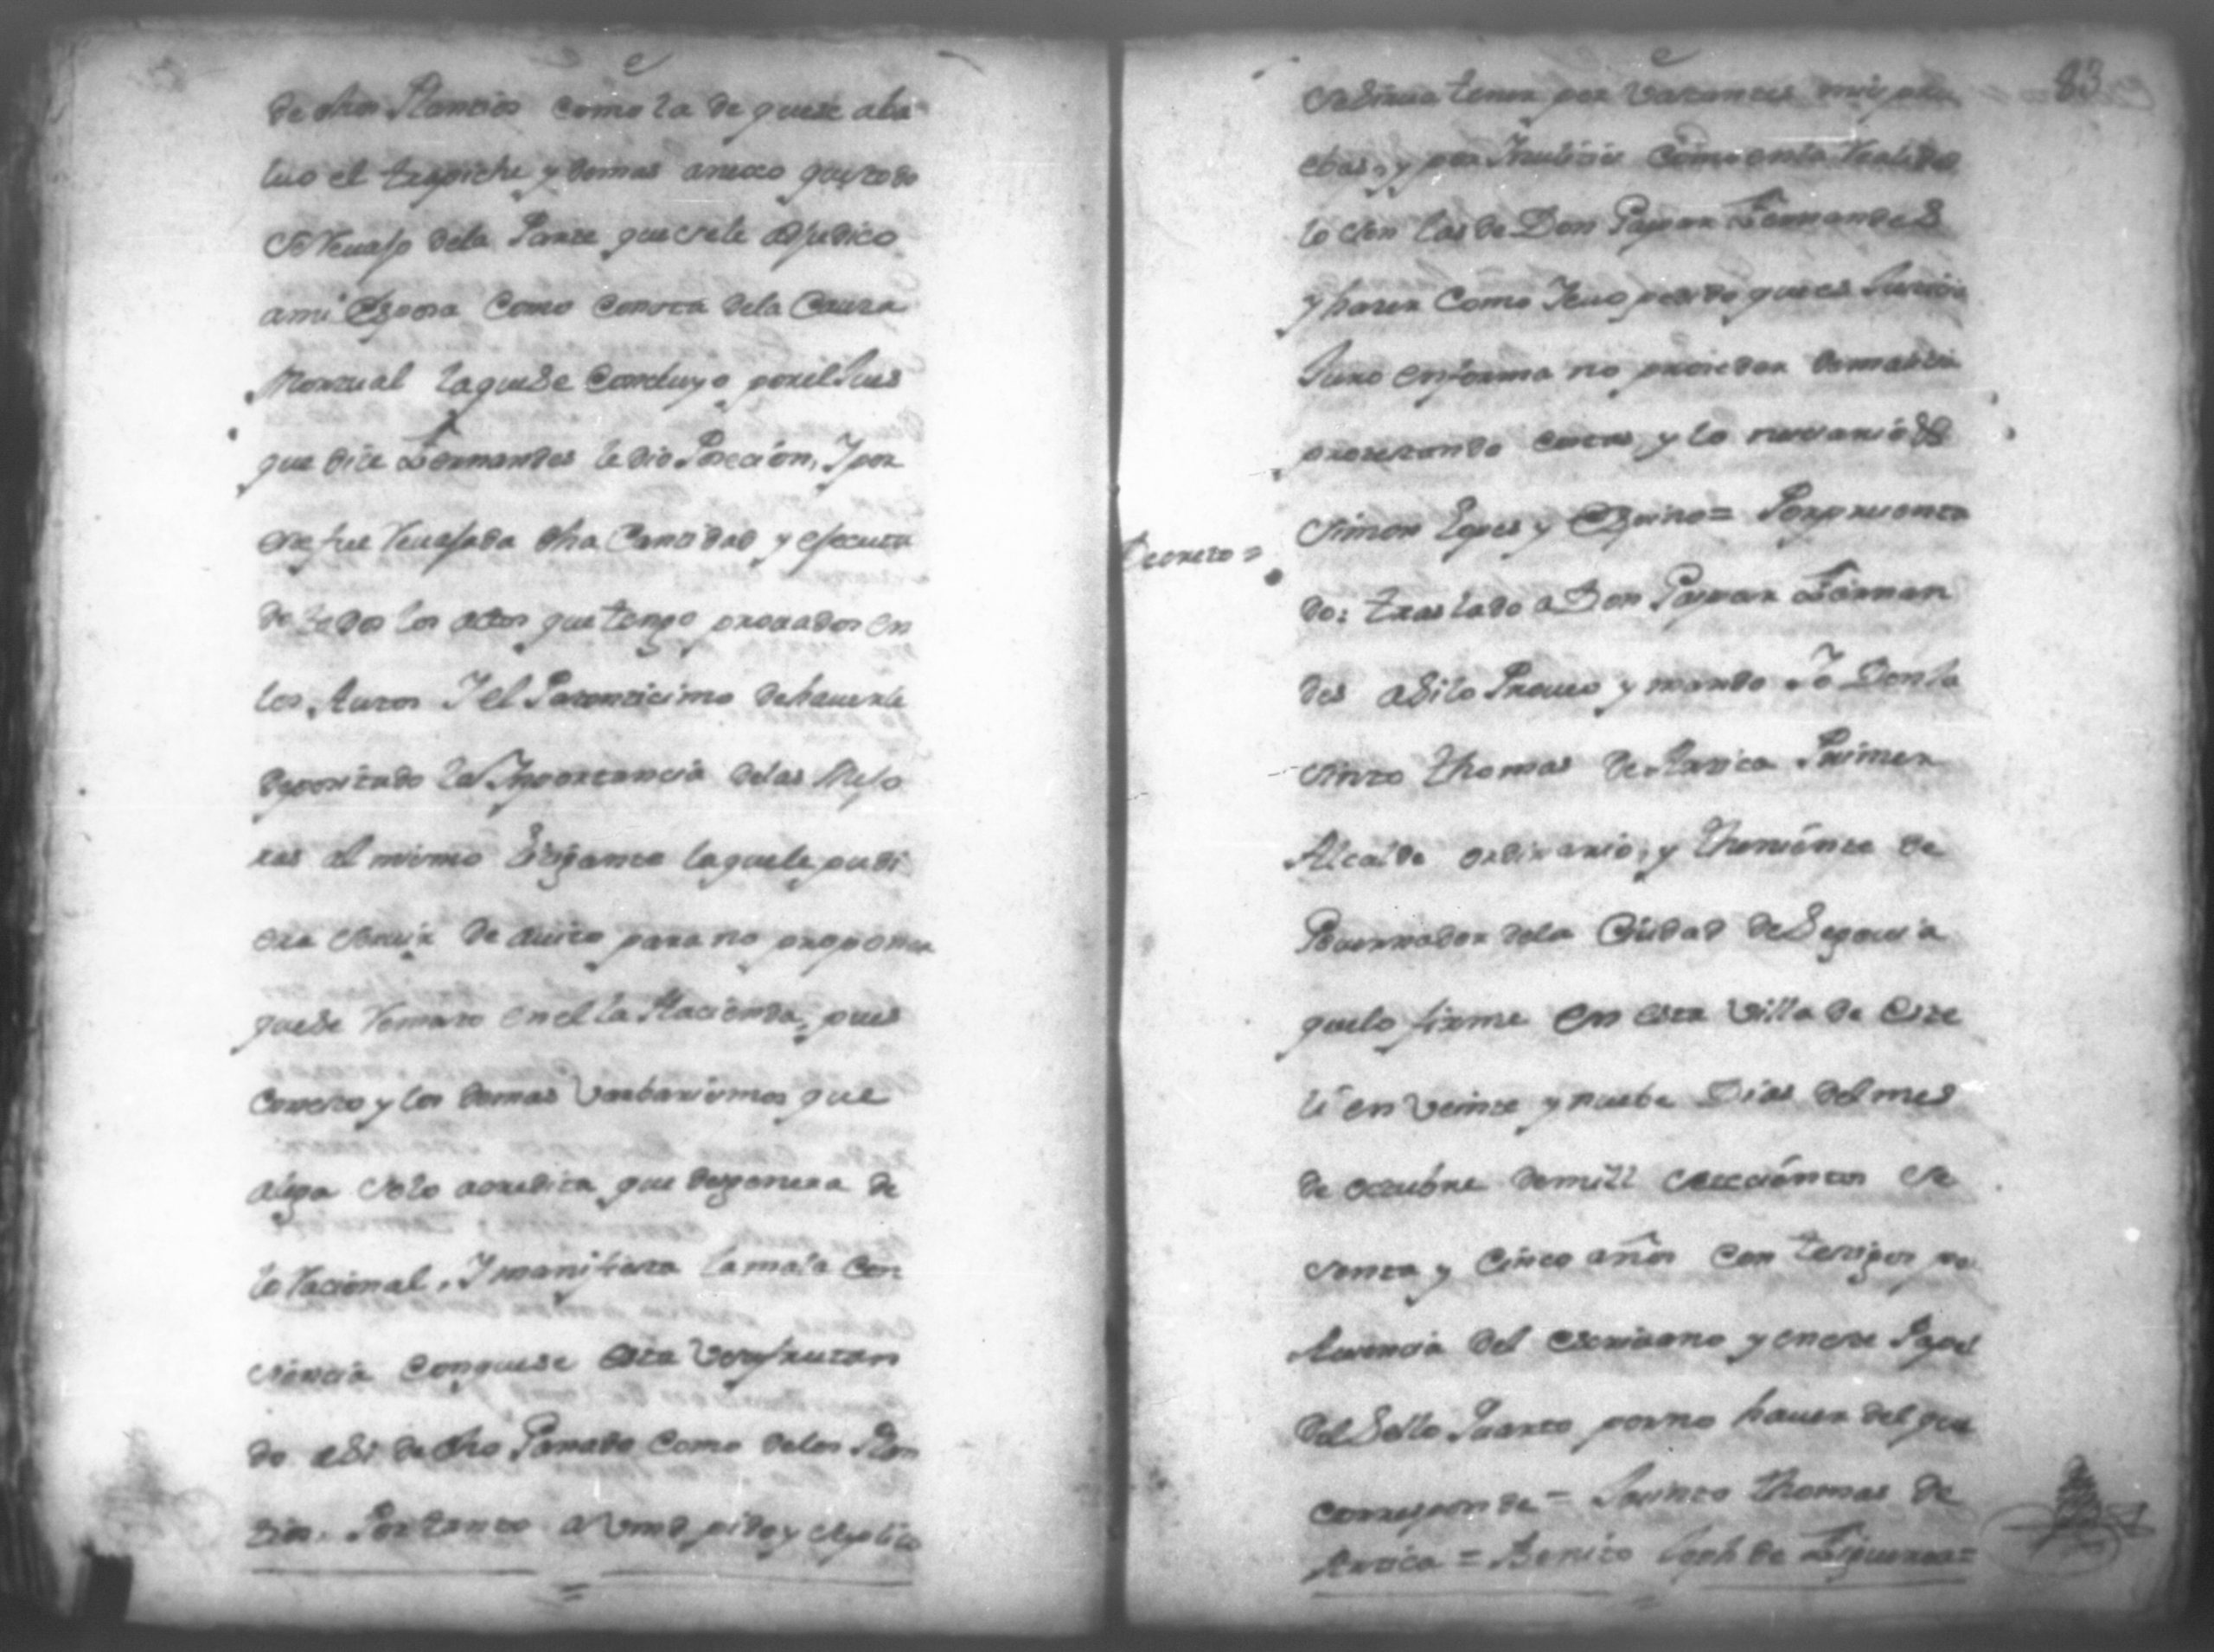 de dhos Plantíos como la de que se aba
luo el trapiche y demas anexo que todo
Se Revajo dela Parte que se le adjudico
ami Esposa como consta dela Causa
Mortual la que se Concluyo por el Jues
que dise Fernandes le dio Poseción, I por
ese fue Revajada dha Cantidad y ejecuta
do todos los actos que tengo provados en
los Autos I el Patenticimo de haverle
depositado la Importancia delas Mejo
ras al mismo laquele pudi
era Servir de aviso para no proponer
que se Remato en el la Hacienda, pues
esto y los demas Varbarismos que
alega Solo acredita que degenera de
lo Racional, I manifiesta la mala Con
siencia conque se esta Usufrutan
do asi de dho Panado como delos Plan
tios. Por tanto a Vmd pido y Suplico
83
se Sirva tener por vastantes mis pru
ebas, y por
lo Son las de Don Gaspar Fernandes
y haser como llevo pedido que es Justicia
Juro en forma no proceder de malicia
protestando costas y lo necesario &
Simon Lopes y Espino = Por presenta
Decreto =
do: traslado a Don Gaspar Fernan
des asi lo Proveo y mando Yo Don Ja
sinto Thomas de Arauca Primer
Alcalde ordinario, y Theniente de
Governador dela Ciudad de Segovia
que lo firme en esta Villa de Este
lí en veinte y nuebe Dias del mes
de octubre de mill setecientos se
senta y Cinco años con testigos por
Ausencia del escrivano y en este Papel
del Sello Quarto por no haver del que
corresponde = Jasinto Thomas de
= Benito Joph de Figueroa =